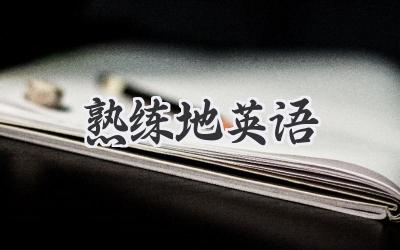 熟练地英语